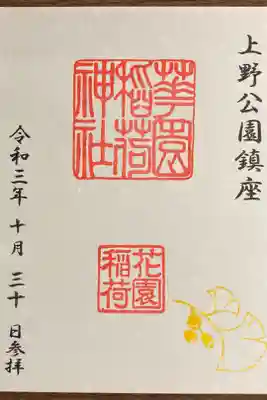 上野公園鎮座
華園
稲荷
神社
花園
稲荷
令和三年 十月 三十 日参拝